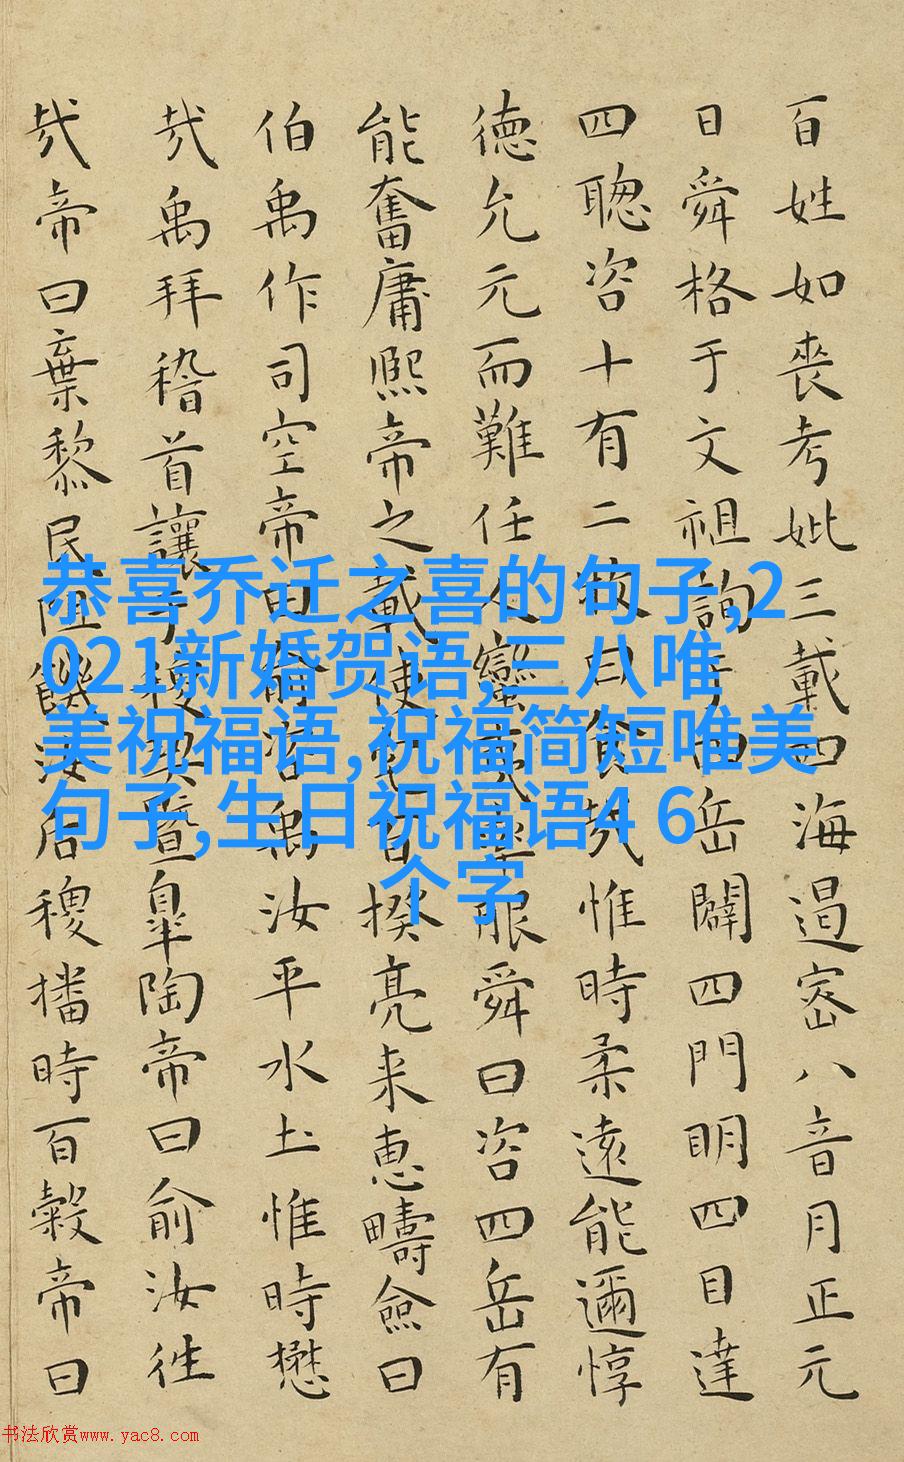 百姓如喪考妣三載四海遏密八音月正元
日舜格于文祖詢于四岳闢四門明四目達
四聰咨十有二牧曰食哉惟時柔遠能邇惇
德允元而難任人蠻夷率服舜曰咨四岳有
能奮庸熙帝之載使宅百揆亮来惠疇僉曰
伯禹作司空帝曰俞咨禹汝平水土惟時懋
哉禹拜稽首讓于稷契暨皐陶帝曰俞汝往
哉帝曰棄黎民阻饑汝后稷播時百穀帝曰
恭喜乔迁之喜的句子,2
021新婚贺语,三八唯
美祝福语,祝福简短唯美
句子,生日祝福语4 6
个字
书法欣赏www.yac8.com